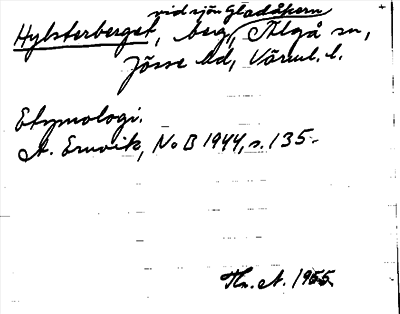 vid sjön Gladåkern
Hylsterberget, berg, Älgå sn,
Jösse hd, Värml. l.
Etymologi.
A. Ernvik, NoB 1944, s. 135.
Hn. A. 1955